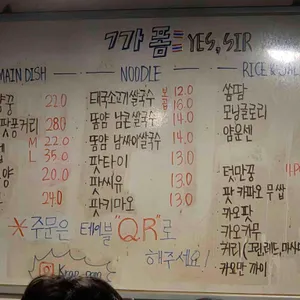 ㄱ가 폼 YES, SIR
MAIN DISH NOODLE RICE &
22.0
태국소고기쌀국수 12.0
16.0
쏨땀
팟퐁커리 28.0
똠얌 남콘쌀국수 14.0
모닝글로리
M 22.0
똠얌 남싸이쌀국수 14.0
얌운센
L 35.0
팟타이 13.0
20.0
팟씨유 13.0
텃만꿍
24.0
팟키마오 13.0
팟 카파오 무쌉
카오팟
카오카무
*주문은 테이블 "QR"로
해주세요!
커리(그린,레드,마싸
카오만 까이